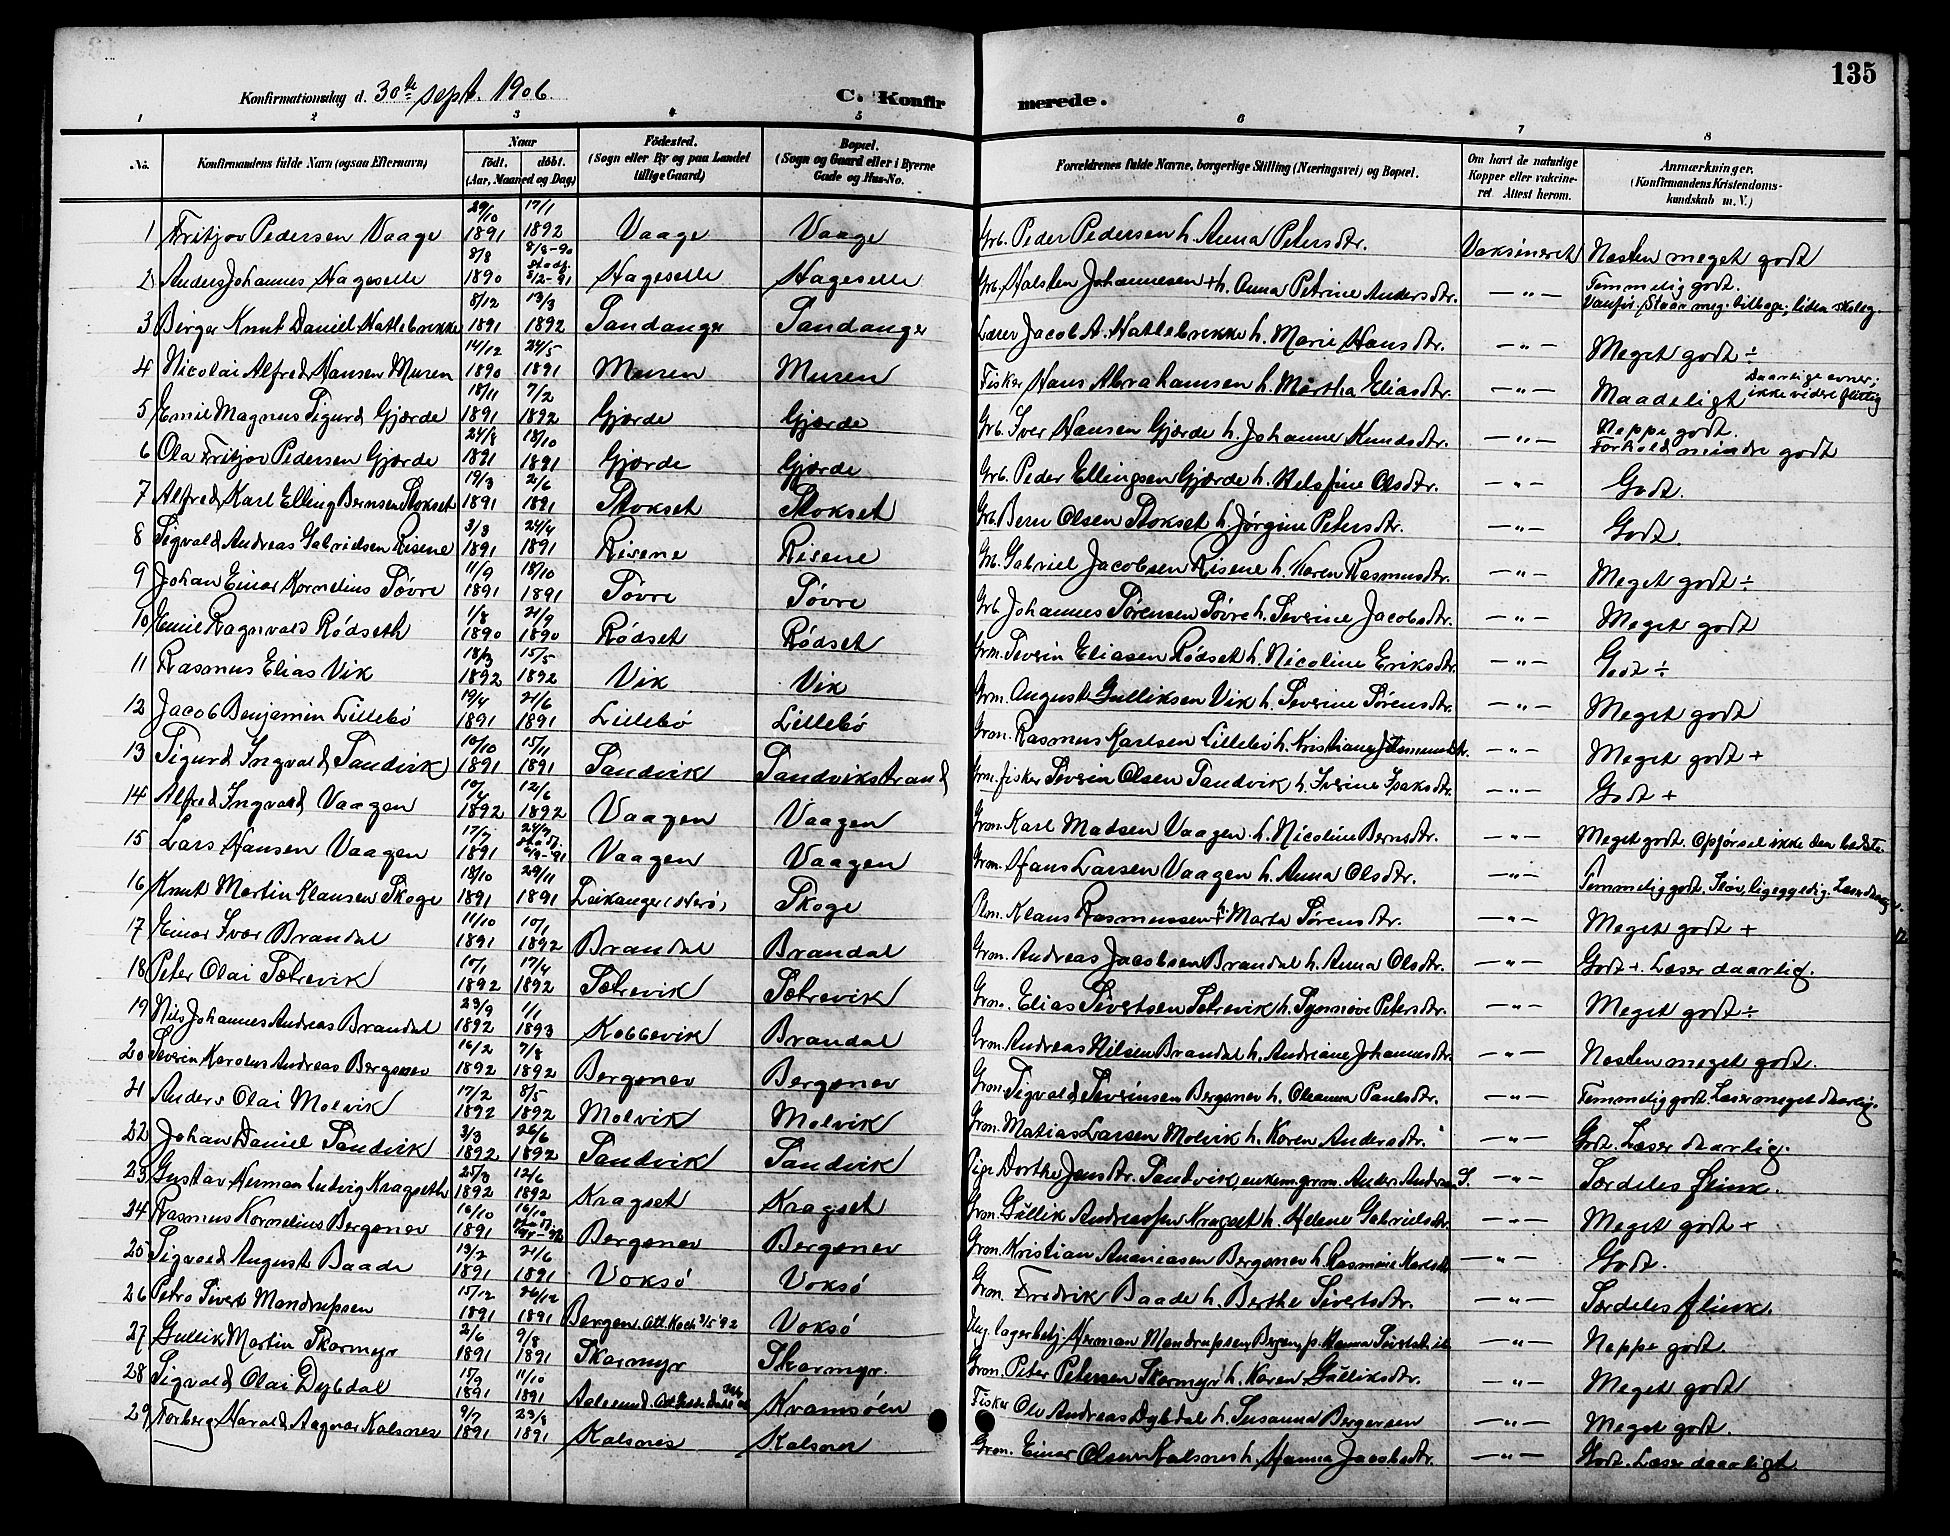 135
Konfirmationsdag d. 30te sept. 1906.
C. Konfirmerede.
1 2 3 4 5 6 7 8
No. Konfirmandens fulde Navn (ogsaa Efternavn) Naar født, døbt. (Aar, Maaned og Dag) Fødested. (Sogn eller By og paa Landet tillige Gaard) Bopæl. (Sogn og Gaard eller i Byerne Gade og Hus-No. Forældrenes fulde Navne, borgerlige Stilling (Næringsvei) og Bopæl. Om havt de naturlige Kopper eller vakcineret. Attest herom. Anmærkninger. (Konfirmandens Kristendomskundskab m. V.)
1 Fritjov Pedersen Vaage 29/10 1891 17/1 1892 Vaage Vaage Grb. Peder Pedersen h. Anna Petersdtr. Vaksineret Næsten meget godt
2 Anders Johannes Hageselle 8/8 1890 8/8-90 stadf. 8/2-91 Hageselle Hageselle Grb. Halsten Johannesen + h. Anna Petrine Andersdtr. —"— Temmelig godt. Vanfør. Staar meg. tilbage; liden skoleg.
3 Birger Knut Daniel Hatlebrekke 8/12 1891 13/3 1892 Sandanger Sandanger Lærer Jacob A. Hatlebrekke h. Marie Hansdtr. —"— Meget godt ÷
4 Nicolai Alfred Hansen Muren 14/12 1890 24/5 1891 Muren Muren Fisker Hans Abrahamsen h. Martha Eliasdtr. —"— Maadeligt Daarlige evner; ikke videre flittig
5 Emil Magnus Sigurd Gjærde 18/11 1891 7/2 1892 Gjærde Gjærde Grb. Iver Hansen Gjærde h. Johanne Knudsdtr. —"— Neppe godt. Forhold mindre godt
6 Ola Fritjov Pedersen Gjærde 24/8 1891 18/10 1891 Gjærde Gjærde Grb. Peder Ellingsen Gjærde h. Helsfine Olsdtr. —"— Godt.
7 Alfred Karl Elling Bernsen Stokset 19/3 1891 2/6 1891 Stokset Stokset Grb. Bern Olsen Stokset h. Jørgine Petersdtr. —"— Godt.
8 Sigvald Andreas Gabrielsen Risene 3/3 1891 24/4 1891 Risene Risene Grb. Gabriel Jacobsen Risene h. Karen Rasmusdtr. —"— Meget godt ÷
9 Johan Einar Kornelius Søvre 11/9 1891 18/10 1891 Søvre Søvre Grb. Johannes Sørensen Søvre h. Severine Jacobsdtr. —"— Meget godt
10 Emil Ragnvald Rødseth 1/8 1890 21/9 1890 Rødset Rødset Grm. Severin Eliasen Rødset h. Nicoline Eriksdtr. —"— Godt ÷
11 Rasmus Elias Vik 18/3 1892 15/5 1892 Vik Vik Grm. August Gulliksen Vik h. Severine Sørensdtr. —"— Meget godt
12 Jacob Benjamin Lillebø 19/4 1891 21/6 1891 Lillebø Lillebø Grm. Rasmus Karlsen Lillebø h. Kristiane —"— Meget godt +
13 Sigurd Ingvald Sandvik 10/10 1891 15/11 1891 Sandvik Sandvikstrand Grm. fisker Severin Olsen Sandvik h. Iverine —"— Godt +
14 Alfred Ingvald Vaagen 10/4 1892 12/6 1892 Vaagen Vaagen Grm. Karl Madsen Vaagen h. Nicoline Bernsdtr. —"— Meget godt. Opførsel ikke den bedste
15 Lars Hansen Vaagen 17/7 1891 24/7 stadf. 6/9-91 Vaagen Vaagen Grm. Hans Larsen Vaagen h. Anna Olsdtr. —"— Temmelig godt. Sløv, ligegyldig.
16 Knut Martin Klausen Skoge 18/10 1891 29/11 1891 Leikanger (Herø) Skoge Klaus Rasmussen h. + Marta Sørensdtr. —"— Meget godt +
17 Einar Ivar Brandal 11/10 1891 10/1 1892 Brandal Brandal Grm. Andreas Jacobsen Brandal h. Anna Olsdtr. —"— Godt +. Læser daarlig.
18 Peter Olai Sætrevik 10/1 1892 17/4 1892 Sætrevik Sætrevik Grm. Elias Sivertsen Sætrevik h. Synnøve Petersdtr. —"— Meget godt ÷
19 Nils Johannes Andreas Brandal 23/9 1892 1/1 1893 Kobbevik Brandal Grm. Andreas Nilsen Brandal h. Andriane Johannesdtr. —"— Næsten meget godt.
20 Severin Karolus Andreas Bergsnev 16/2 1892 7/8 1892 Bergsnev Bergsnev Grm. Sigvald Severinsen Bergsnev h. Oleanna Paulsdtr. —"— Temmelig godt. Læser meget daarlig.
21 Anders Olai Molvik 17/2 1892 8/5 1892 Molvik Molvik Grm. Matias Larsen Molvik h. Karen Andersdtr. —"— Godt. Læser daarlig.
22 Johan Daniel Sandvik 3/3 1892 26/6 1892 Sandvik Sandvik Pige Dorthe Jensdtr. Sandvik, enkem. grm. Anders Andersen S. —"— Særdeles flink.
23 Gustav Herman Ludvig Kragseth 25/3 1892 12/6 1892 Kragset Kragset Grm. Gullik Andreassen Kragset h. Helene Gabrielsdtr. —"— Meget godt +
24 Rasmus Kornelius Bergsnev 16/10 1891 16/10 stadf. Bergsnev Bergsnev Grm. Kristian Ananiasen Bergsnev h. Rasmine Karlsdtr. —"— Godt.
25 Sigvald August Baade 19/2 1891 21/6 1891 Voksø Voksø Grm. Fredrik Baade h. Berthe Sivertsdtr. —"— Særdeles flink.
26 Petro Sivert Mandrupsen 15/12 1891 26/12 1891 Bergen Att. Koch 3/5 92 Voksø Ung. lagerbetj. Herman Mandrupsen Bergen, p. Hanna —"— Neppe godt.
27 Gullik Martin Skarmyr 2/6 1891 9/8 1891 Skarmyr Skarmyr. Grm. Peter Petersen Skarmyr h. Karen Gulliksdtr. —"— Meget godt
28 Sigvald Olai Dybdal 15/9 1891 11/10 1891 Aalesund Kramsøen Fisker Ole Andreas Dybdal h. Susanna Bergersen —"— Meget godt.
29 Torberg Harald Ragnar Kalsnes 9/7 1891 23/8 1891 Kalsnes Kalsnes Grm. Einar Olsen Kalsnes h. Hanna Jacobsdtr. —"— Godt. Læser daarligt.